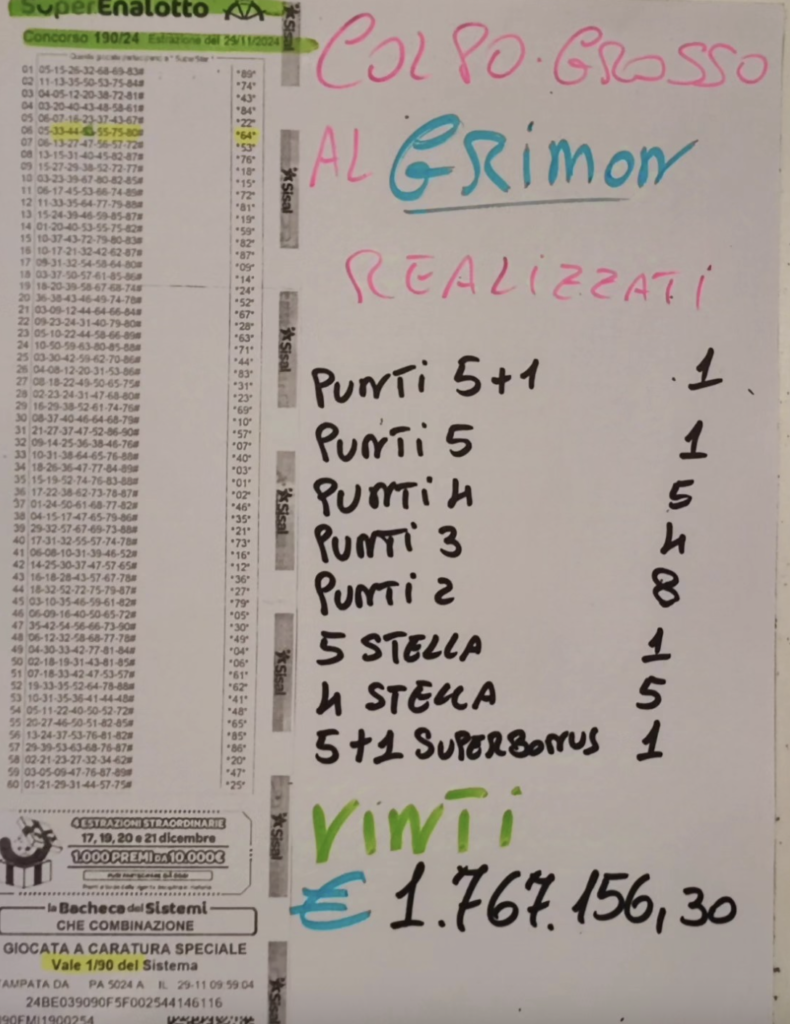 SuperEnalotto
Concorso 190/24 Estrazione del 29/11/2024
01 05-15-26-32-68-69-83# *89*
02 11-13-35-50-53-75-84# *74*
03 04-05-12-20-38-72-81# *43*
04 03-20-40-43-48-58-61# *84*
05 06-07-16-23-37-43-67# *22*
*64*
07 06-13-27-47-56-57-72# *53*
08 13-15-31-40-45-82-87# *76*
09 15-27-29-38-52-72-77# *18*
10 03-23-39-67-80-82-85# *15*
11 06-17-45-53-66-74-89# *72*
12 11-33-35-64-77-79-88# *81*
13 15-24-39-46-59-85-87# *19*
14 01-20-40-53-55-75-82# *59*
15 10-37-43-72-79-80-83# *82*
16 10-17-21-32-42-62-87# *87*
17 09-31-32-54-58-64-80# *09*
18 03-37-50-57-61-85-86# *14*
19 18-20-39-58-67-68-74# *24*
20 36-38-43-46-49-74-78# *52*
21 03-09-12-44-64-66-84# *67*
22 09-23-24-31-40-79-80# *28*
23 05-10-22-44-58-66-89# *63*
24 10-50-59-63-80-85-88# *71*
25 03-30-42-59-62-70-86# *44*
26 04-08-12-20-31-53-86# *83*
27 08-18-22-49-50-65-75# *31*
28 02-23-24-31-47-68-80# *23*
29 16-29-38-52-61-74-76# *69*
30 08-37-40-46-64-68-79# *10*
31 21-27-37-47-52-86-90# *57*
32 09-14-25-36-38-46-76# *07*
33 10-31-38-64-65-76-88# *40*
34 18-26-36-47-77-84-89# *03*
35 15-19-52-74-76-83-88# *01*
36 17-22-38-62-73-78-87# *02*
37 01-24-50-61-68-77-82# *46*
38 04-15-17-47-65-79-86# *35*
39 29-32-57-67-69-73-88# *21*
40 17-31-32-55-57-74-78# *73*
41 06-08-10-31-39-46-52# *16*
42 14-25-30-37-47-57-65# *12*
43 16-18-28-43-57-67-78# *36*
44 18-32-52-72-75-79-87# *27*
45 03-10-35-46-59-61-82# *79*
46 06-09-16-40-50-65-72# *05*
47 35-42-54-56-66-73-90# *30*
48 06-12-32-58-68-77-78# *49*
49 04-30-33-42-77-81-84# *04*
50 02-18-19-31-43-81-85# *06*
51 07-18-33-42-47-53-57# *61*
52 19-33-35-52-64-78-88# *62*
53 10-31-35-36-41-44-48# *41*
54 05-11-22-40-50-52-72# *48*
55 20-27-46-50-51-82-85# *65*
56 13-24-37-53-76-81-82# *85*
57 29-39-53-63-68-76-87# *86*
58 02-21-23-27-32-34-62# *20*
59 03-05-09-47-76-87-89# *47*
60 01-21-29-31-44-57-75# *25*
4 ESTRAZIONI STRAORDINARIE
17, 19, 20 e 21 dicembre
1.000 PREMI DA 10.000€
la Bacheca dei Sistemi
CHE COMBINAZIONE
GIOCATA A CARATURA SPECIALE
Vale 1/90 del Sistema
TAMPATA DA PA 5024 A IL 29-11 09:59:04
24BE039090F5F002544146116
Sisal
Sisal
Sisal
Sisal
Sisal
Sisal
Sisal
COLPO GROSSO
AL GRIMON
REALIZZATI
PUNTI 5+1 1
PUNTI 5 1
PUNTI 4 5
PUNTI 3 4
PUNTI 2 8
5 STELLA 1
4 STELLA 5
5+1 SUPERBONUS 1
VINTI
€ 1.767.156,30